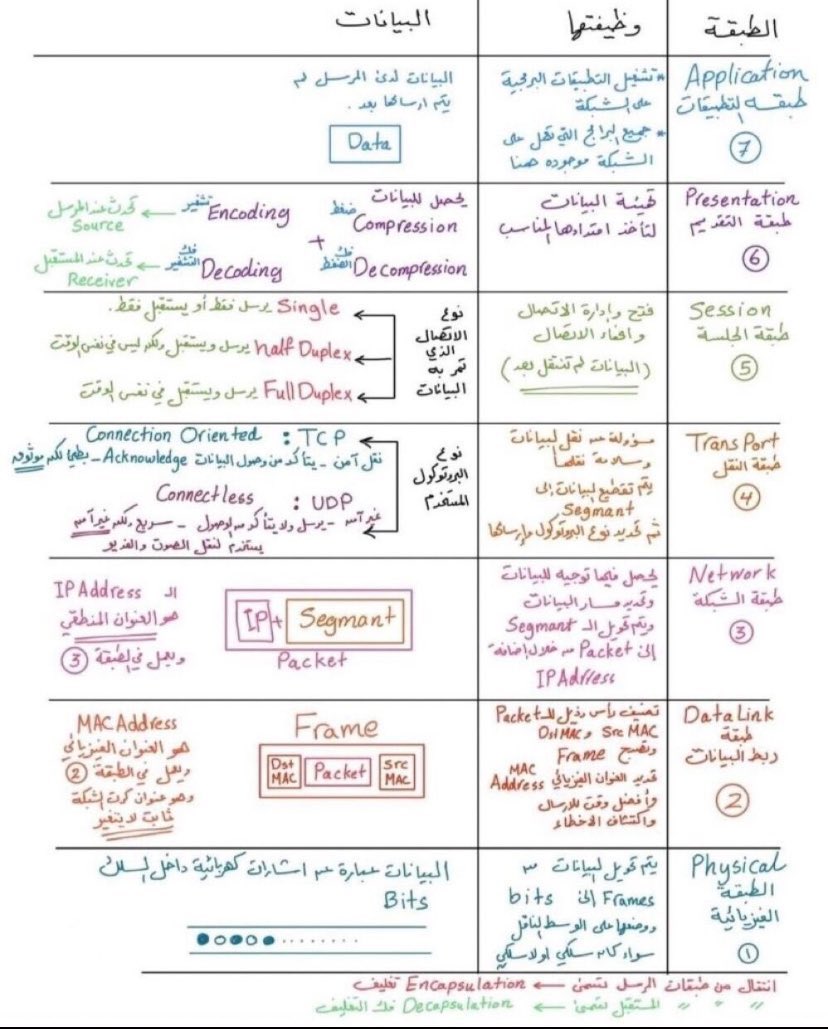 الطبقة
وظيفتها
البيانات
Application
طبقة التطبيقات
7
* تشغيل التطبيقات البرمجية
على الشبكة
* جميع البرامج التي تعمل على
الشبكة موجوده هنا
البيانات لدى المرسل لم
يتم ارسالها بعد .
Data
Presentation
طبقة التقديم
6
تهيئة البيانات
لتأخذ امتدادها المناسب
يحصل للبيانات
ضغط Compression
+
فك الضغط Decompression
تشفير Encoding ← تحدث عند المرسل
Source
فك التشفير Decoding ← تحدث عند المستقبل
Receiver
Session
طبقة الجلسة
5
فتح وإدارة الاتصال
و انهاء الاتصال
(البيانات لم تنتقل بعد)
نوع
الاتصال
الذي
تمر به
البيانات
Single يرسل فقط أو يستقبل فقط.
half Duplex يرسل ويستقبل ولكن ليس في نفس الوقت
Full Duplex يرسل ويستقبل في نفس الوقت
TransPort
طبقة النقل
4
مسؤولة عن نقل البيانات
وسلامة نقلها
يتم تقطيع البيانات إلى
Segment
ثم تحديد نوع البروتوكول وإرسالها
نوع
البروتوكول
المستخدم
Connection Oriented : TCP
نقل آمن - يتأكد من وصول البيانات Acknowledge - بطئ لكن موثوق
Connectless : UDP
غير آمن - يرسل ولا يتأكد من الوصول - سريع ولكن غير آمن
يستخدم لنقل الصوت والفديو
Network
طبقة الشبكة
3
يحصل فيها توجيه للبيانات
وتحديد مسار البيانات
ويتم تحويل الـ Segmant
إلى Packet من خلال إضافة
IP Adrless
IP + Segmant
Packet
الـ IP Address
هو العنوان المنطقي
ويعمل في الطبقة 3
DataLink
طبقة
ربط البيانات
2
تضيف رأس وذيل للـ Packet
Src MAC و Dst MAC
وتصبح Frame
تحديد العنوان الفيزيائي MAC Address
وأفضل وقت للارسال
واكتشاف الاخطاء
Frame
Dst MAC Packet Src MAC
MAC Address
هو العنوان الفيزيائي
ويعمل في الطبقة 2
وهو عنوان كرت الشبكة
ثابت لا يتغير
Physical
الطبقة
الفيزيائية
1
يتم تحويل البيانات من
Frames إلى bits
ووضعها على الوسط الناقل
سواء كان سلكي او لاسلكي
البيانات عبارة عن اشارات كهربائية داخل السلك
Bits
انتقال من طبقات المرسل تسمى ← Encapsulation تغليف
〃 〃 〃 المستقبل تسمى ← Decapsulation فك التغليف